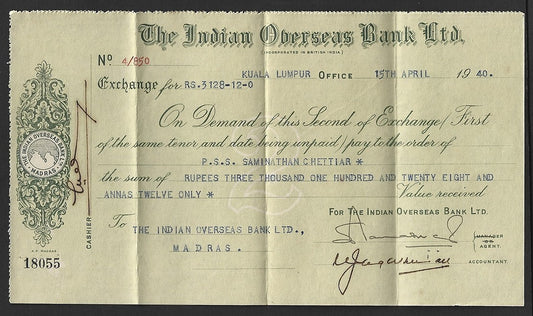 The Indian Overseas Bank Ltd.
(INCORPORATED IN BRITISH INDIA.)
No 4/850
KUALA LUMPUR OFFICE 15TH APRIL 1940.
Exchange for RS.3128-12-0
On Demand of this Second of Exchange (First
of the same tenor and date being unpaid) pay to the order of
P.S.S. SAMINATHAN CHETTIAR *
the sum of RUPEES THREE THOUSAND ONE HUNDRED AND TWENTY EIGHT AND
ANNAS TWELVE ONLY * Value received
FOR THE INDIAN OVERSEAS BANK LTD.
To THE INDIAN OVERSEAS BANK LTD.,
MADRAS.
MANAGER
OR
AGENT.
ACCOUNTANT.
CASHIER
THE INDIAN OVERSEAS BANK LTD.
MADRAS
18055